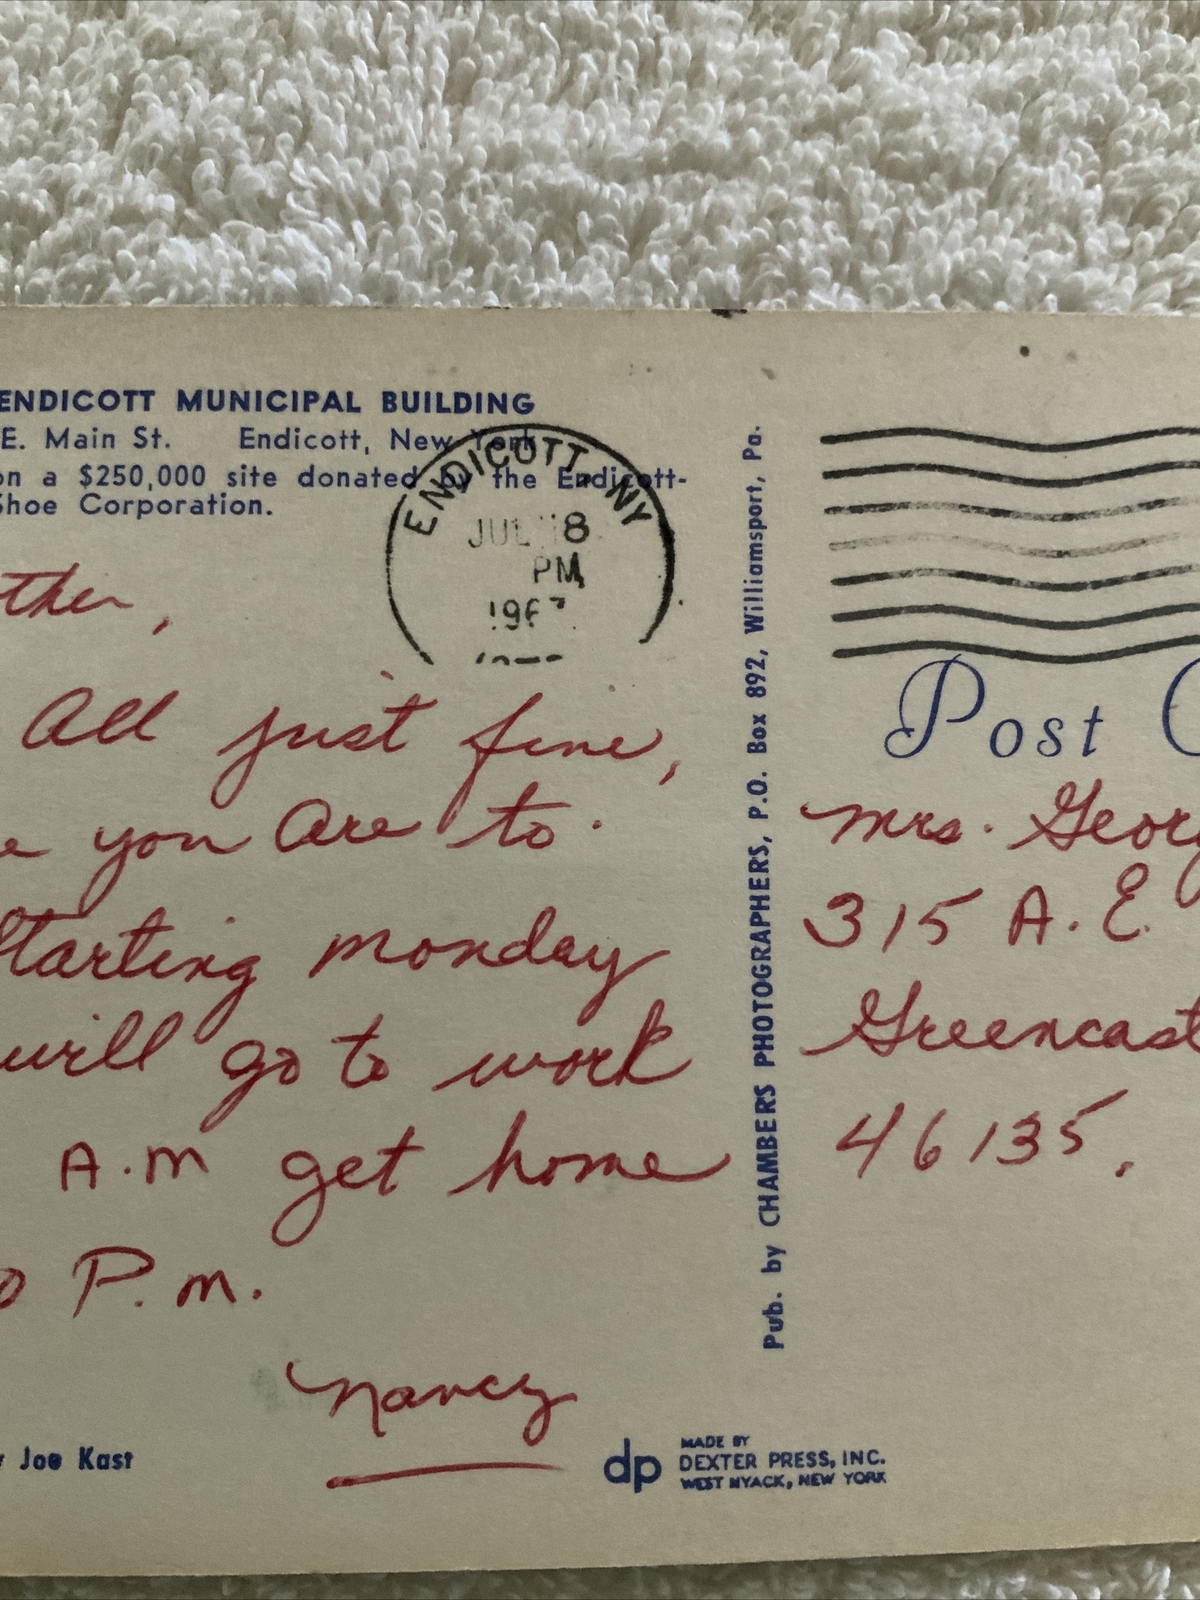 ENDICOTT MUNICIPAL BUILDING
E. Main St. Endicott, New York
on a $250,000 site donated by the Endicott-
Shoe Corporation.
ENDICOTT, NY
JUL 18
PM
196
ther,
All just fine,
e you are to.
Starting monday
will go to work
A.M get home
0 P.m.
Nancy
y Joe Kast
dp
MADE BY
DEXTER PRESS, INC.
WEST NYACK, NEW YORK
Pub. by CHAMBERS PHOTOGRAPHERS, P.O. Box 892, Williamsport, Pa.
Post C
Mrs. Georg
315 A. E.
Greencast
46135.